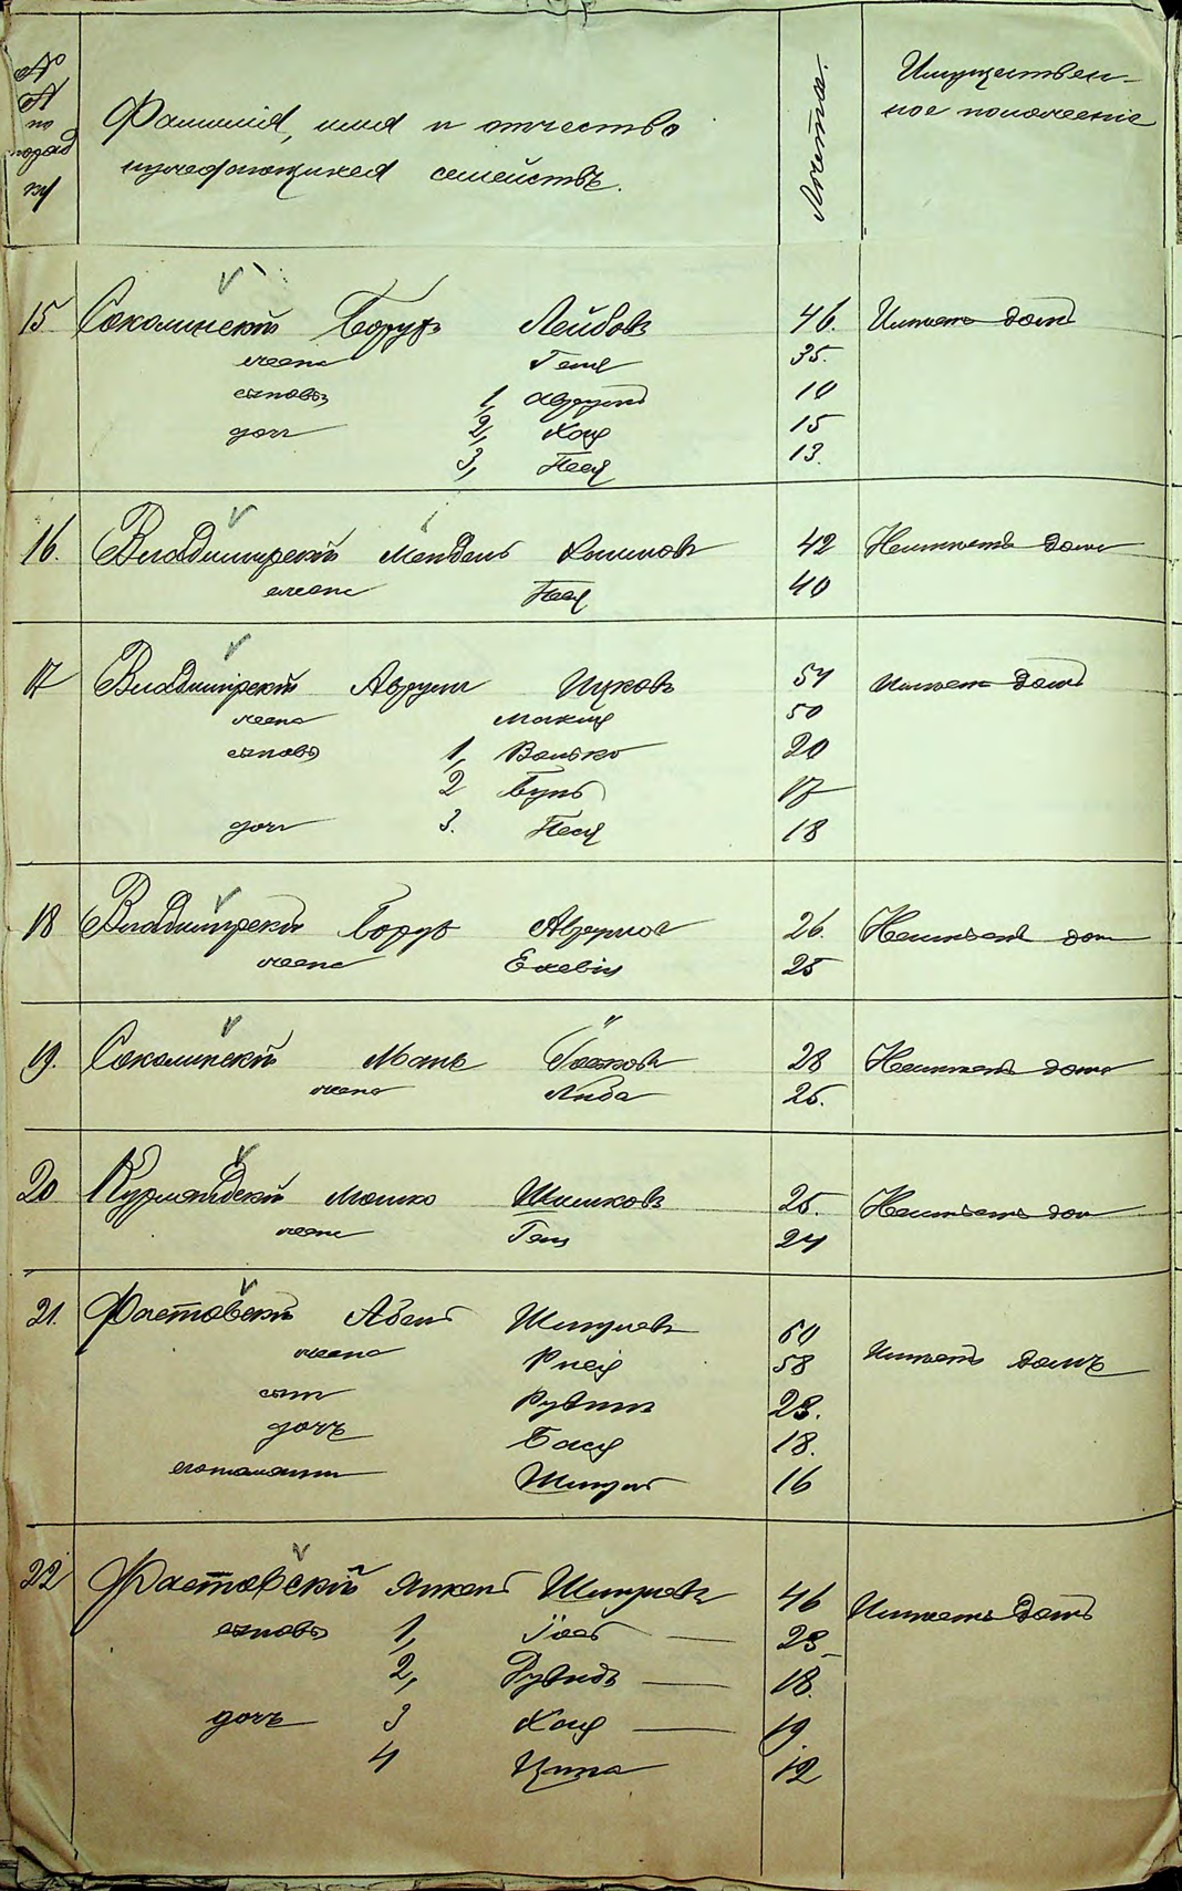 № № по поряд ку
Фамилія, имя и отчество нуждающихся семействъ.
Лѣта.
Имуществен-
ное положеніе
15 Соколинскій Борухъ Лейбовъ 46. Имѣетъ домъ
жена Геня 35.
сыновья 1, Аврумъ 10
дочь 2, Хая 15
3, Песя 13.
16. Владимирскій Мендель Хаимовъ 42 Неимѣетъ дома
жена Песя 40
17 Владимірскій Аврум Ицковъ 54 имѣет домъ
жена 50
сыновья 1, Волько 20
2 Бунъ 17
дочь 3. Песя 18
18 Владимірскій Борух 26. Неимѣетъ дом
жена 25
19. Соколинскій Мань 28 Неимѣетъ дома
жена Либа 25.
20 Курляндскій Мошко Шлиомковъ 25. Неимѣетъ дом
жена Геня 24
21. Фастовскій Абель Шмулевъ 60 Имѣетъ домъ
жена 58
сын Рувинъ 23.
дочь Бася 18.
Шмуль 16
22 Фастовскій Янкель Шмулевъ 46 Имѣетъ домъ
сыновья 1, Іось — 23.
2, — 18.
дочь 3 Хая — 19.
4 Ципа 12